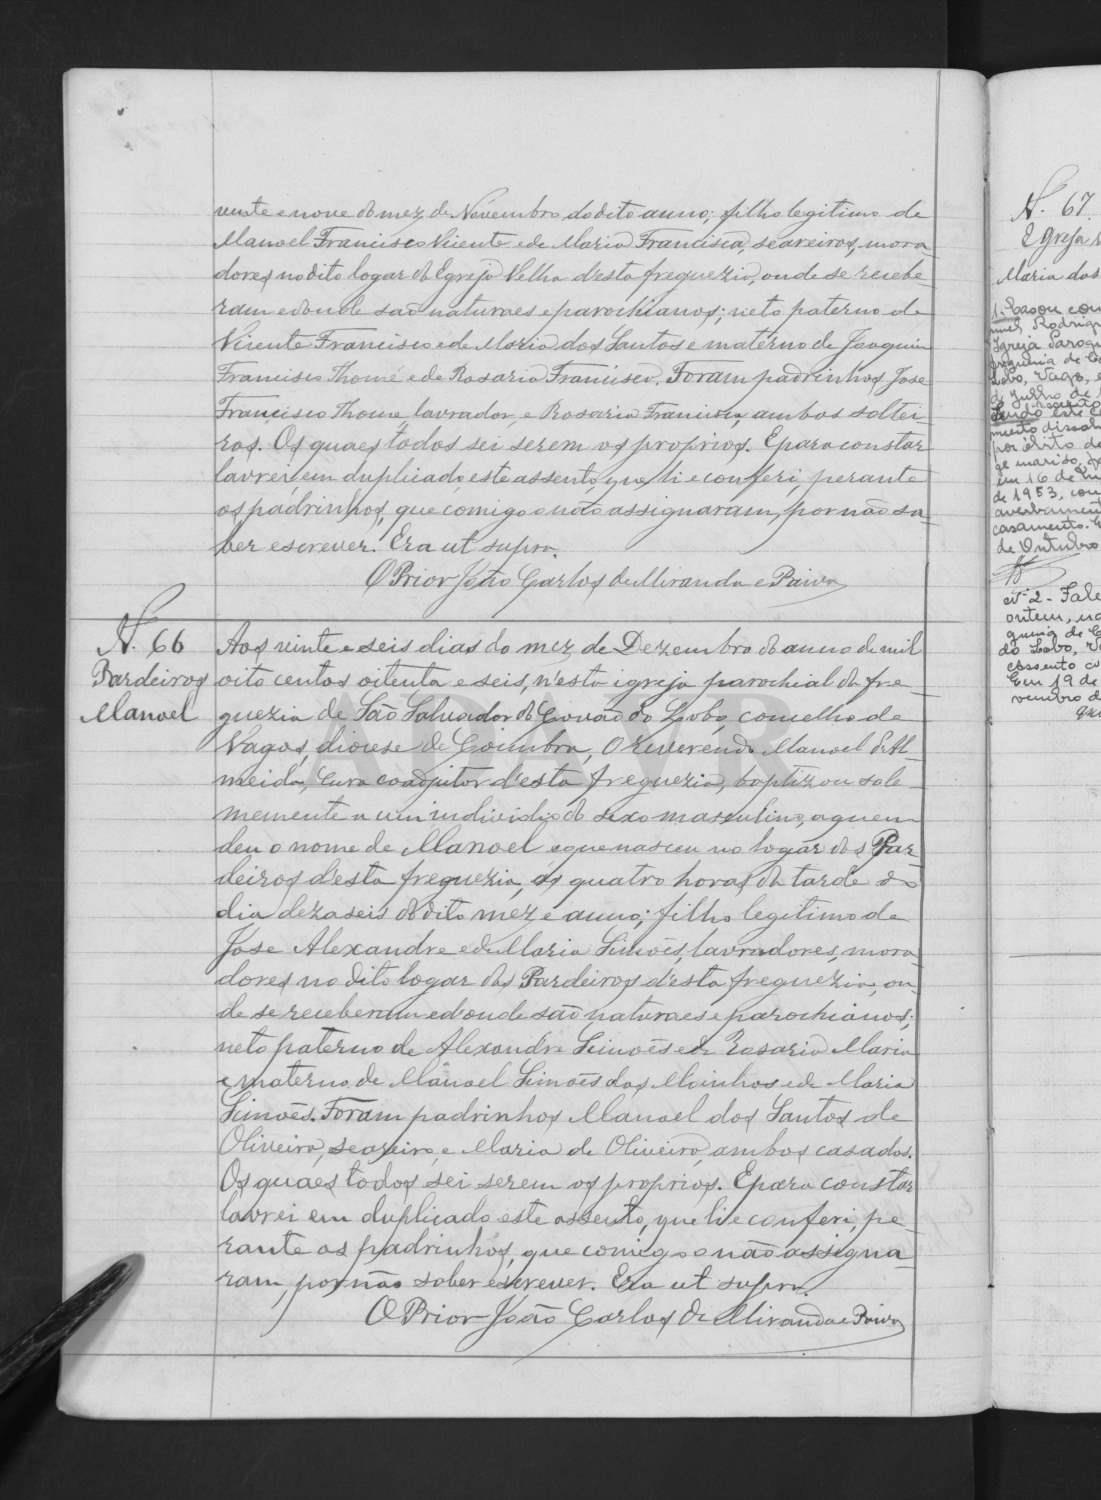 vinte e nove do mez de Novembro do dito anno; filho legitimo de
Manoel Francisco Vicente e de Maria Francisca, seareiros, mora
dores no dito logar da Egreja Velha d'esta freguezia, onde se recebe-
ram e donde saõ naturaes e parochianos; neto paterno de
Vicente Francisco e de Maria dos Santos e materno de Joaquim
Francisco Thomé e de Rosaria Francisca. Foram padrinhos Jose
Francisco Thome lavrador, e Rosaria Francisca, ambos soltei
ros. Os quaes todos sei serem os proprios. E para constar
lavrei, em duplicado, este assento, que li e conferi, perante
os padrinhos, que comigo naõ assignaram, por naõ sa-
ber escrever. Era ut supra.
O Prior João Carlos de Miranda e Paiva
N. 66
Pardeiros
Manoel
Aos vinte e seis dias do mez de Dezembro do anno de mil
oito centos oitenta e seis, n'esta igreja parochial da fre-
guezia de São Salvador do Covão do Lobo, concelho de
Vagos, diocese de Coimbra, O reverendo Manoel d'Al
meida, Cura coadjutor d'esta freguezia, baptizou sole-
memente a um individuo do sexo masculino, a quem
deu o nome de Manoel e que nasceu no logar dos Par-
deiros d'esta freguezia, ás quatro horas da tarde do
dia dezaseis do dito mez e anno; filho legitimo de
Jose Alexandre e de Maria Simões, lavradores, mora-
dores no dito logar dos Pardeiros d'esta freguezia, on-
de se receberam e d'onde saõ naturaes e parochianos;
neto paterno de Alexandre Simoẽs e de Rosaria Maria
e materno, de Manoel Simoẽs dos Moinhos e de Maria
Simoẽs. Foram padrinhos Manoel dos Santos de
Oliveira, seareiro, e Maria de Oliveira, ambos casados.
Os quaes todos sei serem os proprios. E para constar
lavrei em duplicado este assento, que li e conferi, pe-
rante os padrinhos, que comigo não assigna-
ram, por não saber escrever. Era ut supra.
O Prior João Carlos de Miranda e Paiva
ADAVR
N. 67.
Egreja
Maria dos
1. Casou com
Rodrig
Igreja Paroq
Lobo, Vagos,
de Julho de
por óbito do
marido,
em 16 de
de 1953, con
averbament
casamento.
de Outubro
Nº 2 - Fale
ontem, na
do Lobo, Va
assento
Em 19 de
vembro d